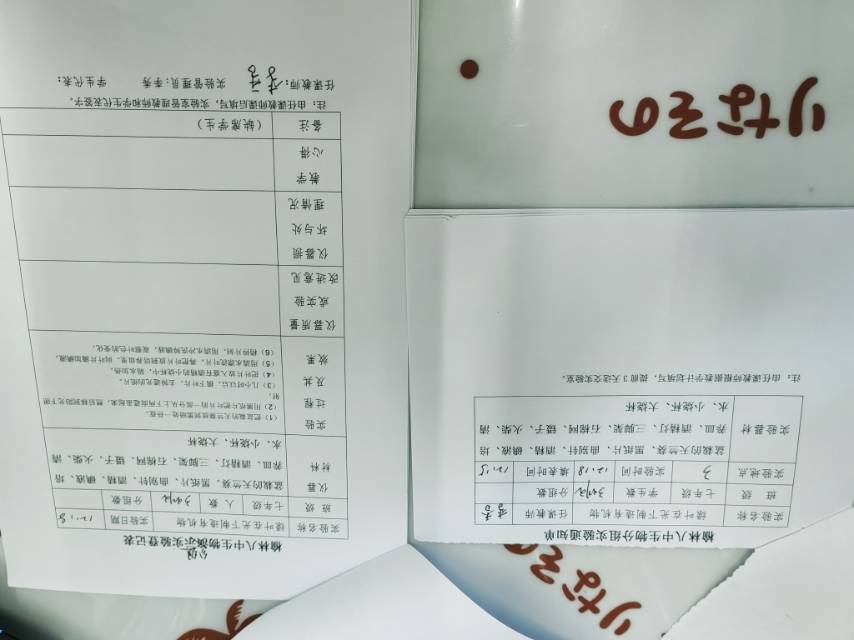 榆林八中生物演示实验登记表
分组
实验名称 绿叶在光下制造有机物 实验日期 12.18
班 级 七年级 人 数 分组数
仪器材料 盆栽的天竺葵、黑纸片、曲别针、酒精、碘液、培养皿、酒精灯、三脚架、石棉网、镊子、火柴、清水、小烧杯、大烧杯
实验过程及其效果
(1)把盆栽的天竺葵放到黑暗处一昼夜。
(2)用黑纸片把叶片的一部分从上下两面遮盖起来,然后移到阳光下照射。
(3)几小时以后,摘下叶片,去掉遮光的纸片。
(4)把叶片放入盛有酒精的小烧杯中,隔水加热。
(5)用清水漂洗叶片,再把叶片放到培养皿里,向叶片滴加碘液。
(6)稍待片刻,用清水冲洗掉碘液,观察叶色的变化。
仪器质量或实验改进意见
仪器损坏与处理情况
教学心得
备注 (缺席学生)
注:由任课教师课后填写,实验室管理教师和学生代表签字。
任课教师: 实验管理员:季秀 学生代表:
榆林八中生物分组实验通知单
实验名称 绿叶在光下制造有机物 任课教师
班 级 七年级 学生数 分组数
实验地点 3 实验时间 12.18 填表时间 12.15
实验器材 盆栽的天竺葵、黑纸片、曲别针、酒精、碘液、培养皿、酒精灯、三脚架、石棉网、镊子、火柴、清水、小烧杯、大烧杯
注:由任课教师根据教学计划填写,提前3天送交实验室。
りなその
りなその